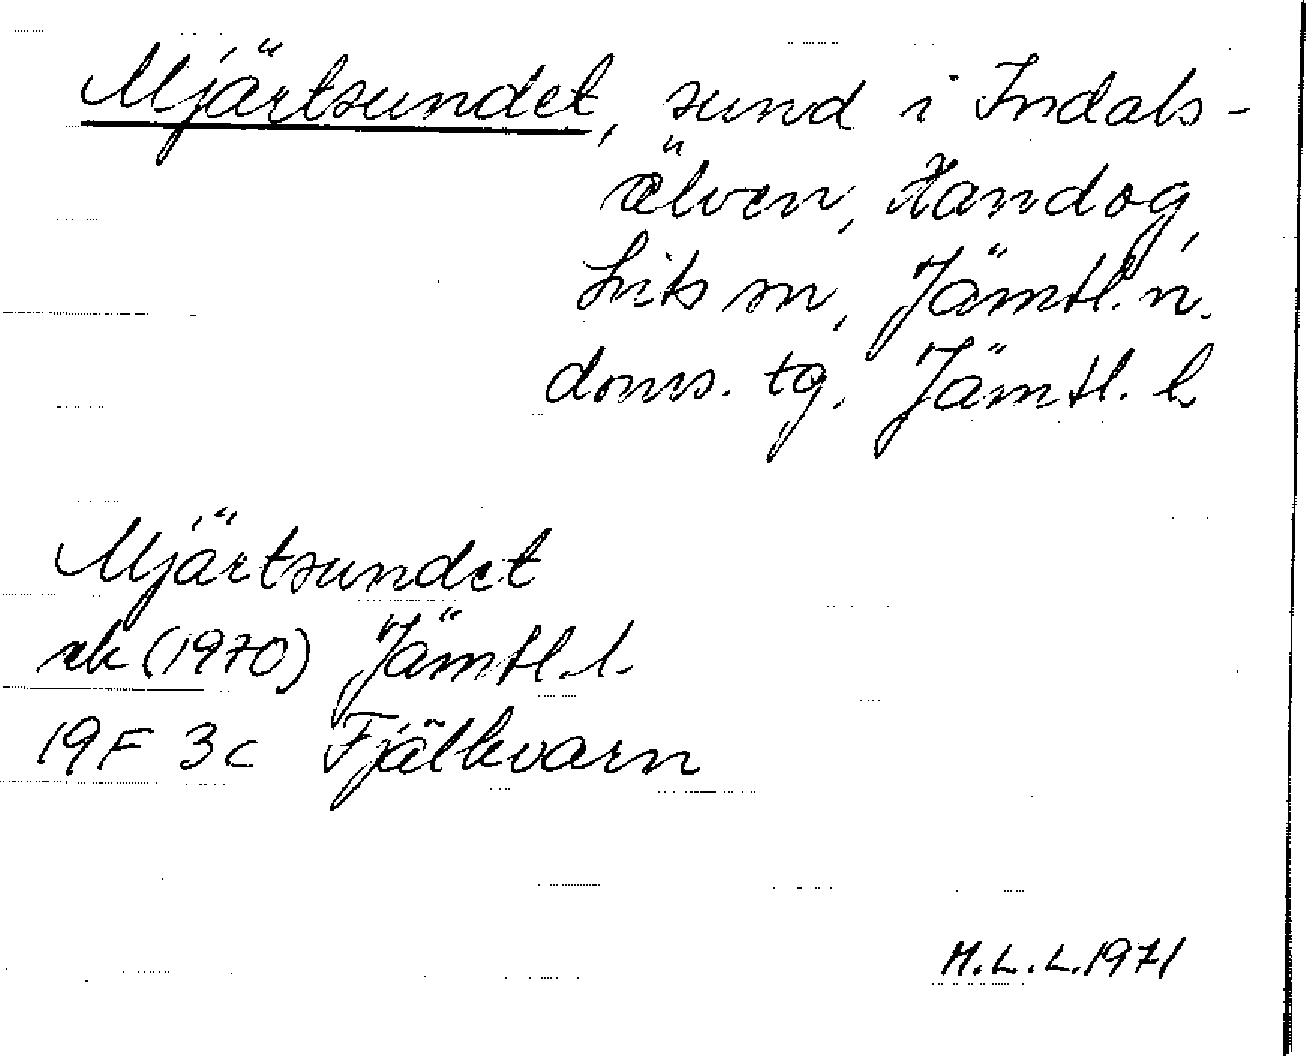 Mjärtsundet, sund i Indals-
älven, Handog,
Lits sn, Jämtl. n.
doms. tg. Jämtl. l
Mjärtsundet
ek (1970) Jämtl. l.
19F 3c Fjälkvarn
M.L.L. 1971